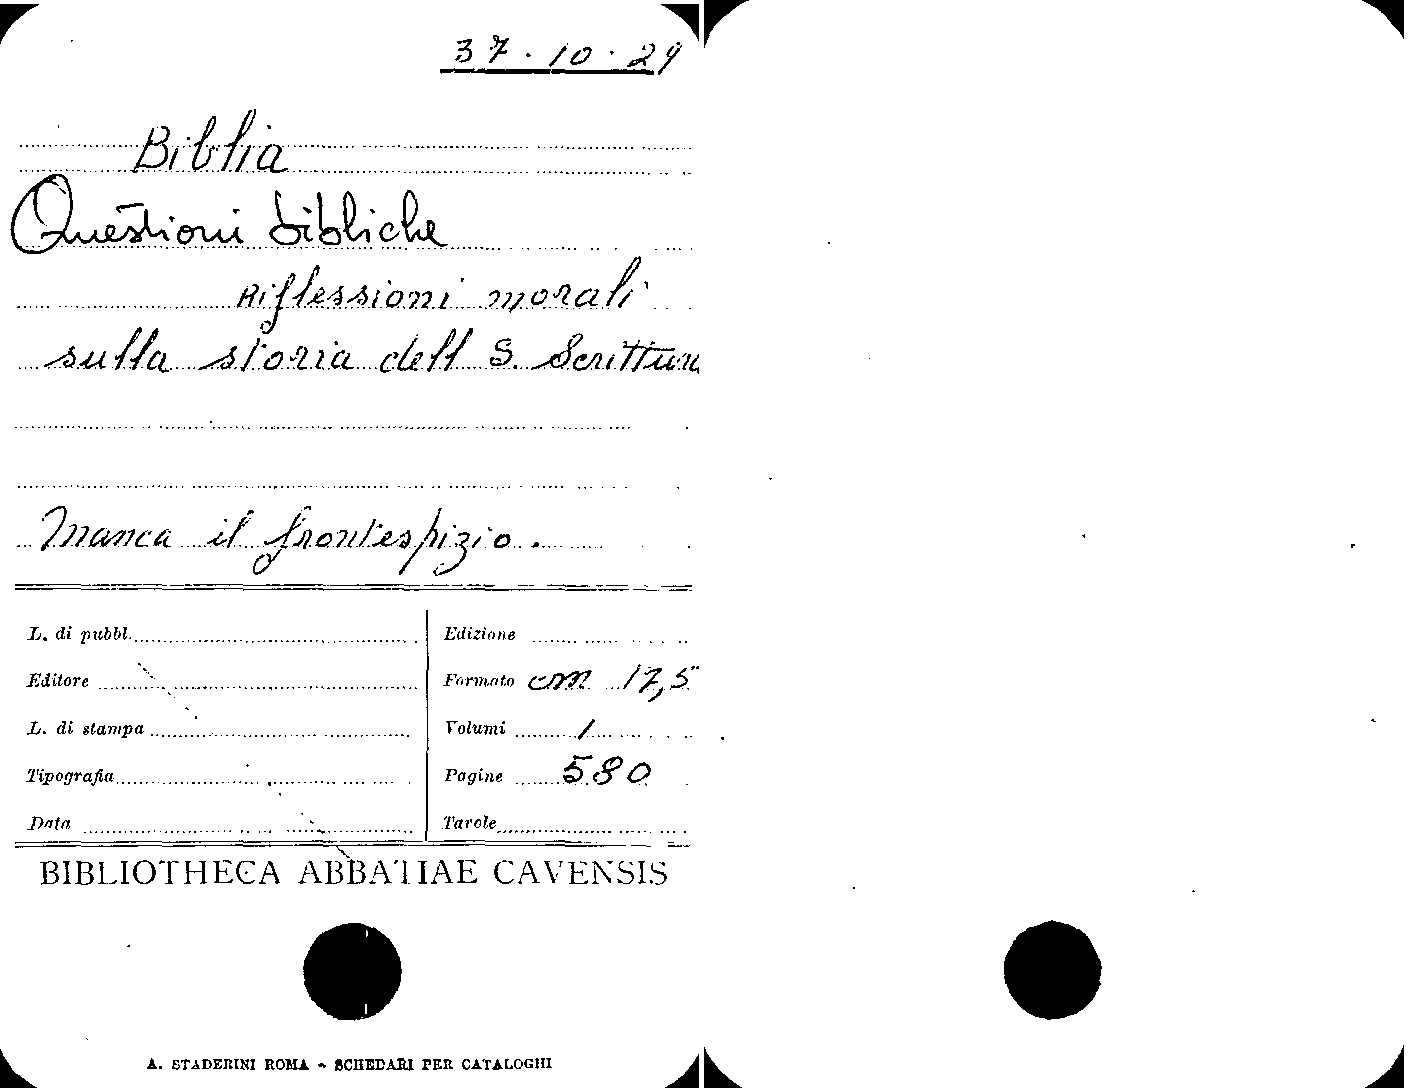 37.10.29
Biblia
Questioni bibliche
Riflessioni morali
sulla storia dell S. Scrittura
Manca il frontespizio.
L. di pubbl.
Editore
L. di stampa
Tipografia
Data
Edizione
Formato cm 17,5
Volumi 1
Pagine 580
Tavole
BIBLIOTHECA ABBATIAE CAVENSIS
A. STADERINI ROMA - SCHEDARI PER CATALOGHI